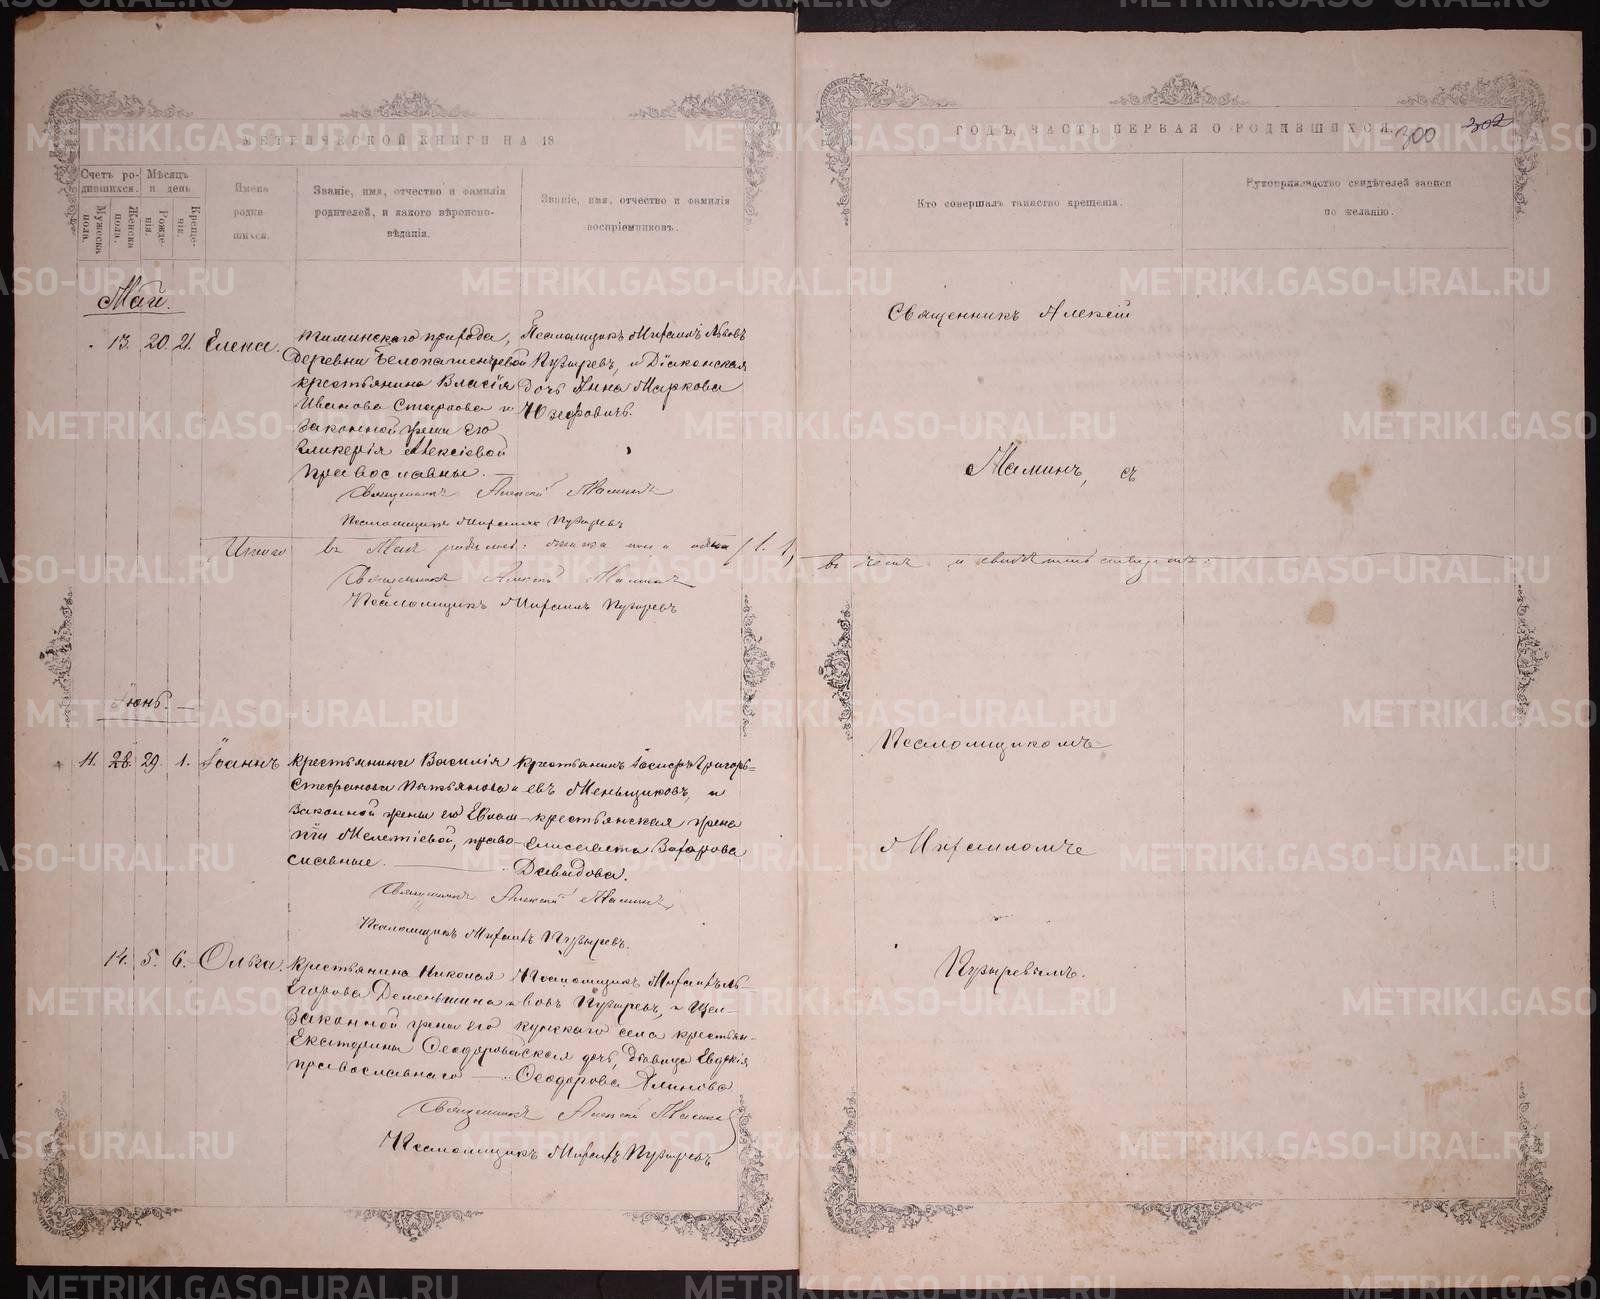 МЕТРИЧЕСКОЙ КНИГИ НА 18
Счетъ ро-
дившихся.
Мужеска
пола.
Женска
пола.
Мѣсяцъ
и день
Рожде-
нія.
Креще-
нія.
Имена
роди-
шихся.
Званіе, имя, отчество и фамилія
родителей, и какого вѣроиспо-
вѣданія.
Званіе, имя, отчество и фамилія
воспріемниковъ.
Май.
13. 20. 21. Елена.
прихода,
деревни
крестьянина Власія
Иванова и
законной жены его
Гликерія Алексіевой
православны.
Псаломщикъ Михаилъ Львовъ
Пузыревъ, и Діаконская
дочь Анна Маркова
Юзефовичъ.
Священникъ Алексій Маминъ
Псаломщикъ Михаилъ Пузыревъ
Итого въ Маѣ
Священникъ Алексій Маминъ
Псаломщикъ Михаилъ Пузыревъ
Іюнь.
11. 28. 29. 1. Іоаннъ
Крестьянина Василія
Стефанова и
законной жены его Евлам-
піи Мелетіевой, право-
славные.
Крестьянинъ Іосифъ Григорь-
евъ Меньщиковъ, и
крестьянская жена
Елисавета Захарова
Давыдова.
Священникъ Алексій Маминъ
Псаломщикъ Михаилъ Пузыревъ.
14. 5. 6. Ольга.
Крестьянина Николая
Егорова Деменьшина и
законной жены его
Екатерины Ѳеодоровой
православнаго
Псаломщикъ Михаилъ Ль-
вовъ Пузыревъ, и Щел-
кунскаго села крестьян-
ская дочь, дѣвица Евдокія
Ѳеодорова
Священникъ Алексій Маминъ
Псаломщикъ Михаилъ Пузыревъ
ГОДЪ, ЧАСТЬ ПЕРВАЯ О РОДИВШИХСЯ.
300 302
Кто совершалъ таинство крещенія.
Рукоприкладство свидѣтелей записи
по желанію.
Священникъ Алексій
Маминъ, съ
въ чемъ и
Псаломщикомъ
Михаиломъ
Пузыревымъ.
METRIKI.GASO-URAL.RU